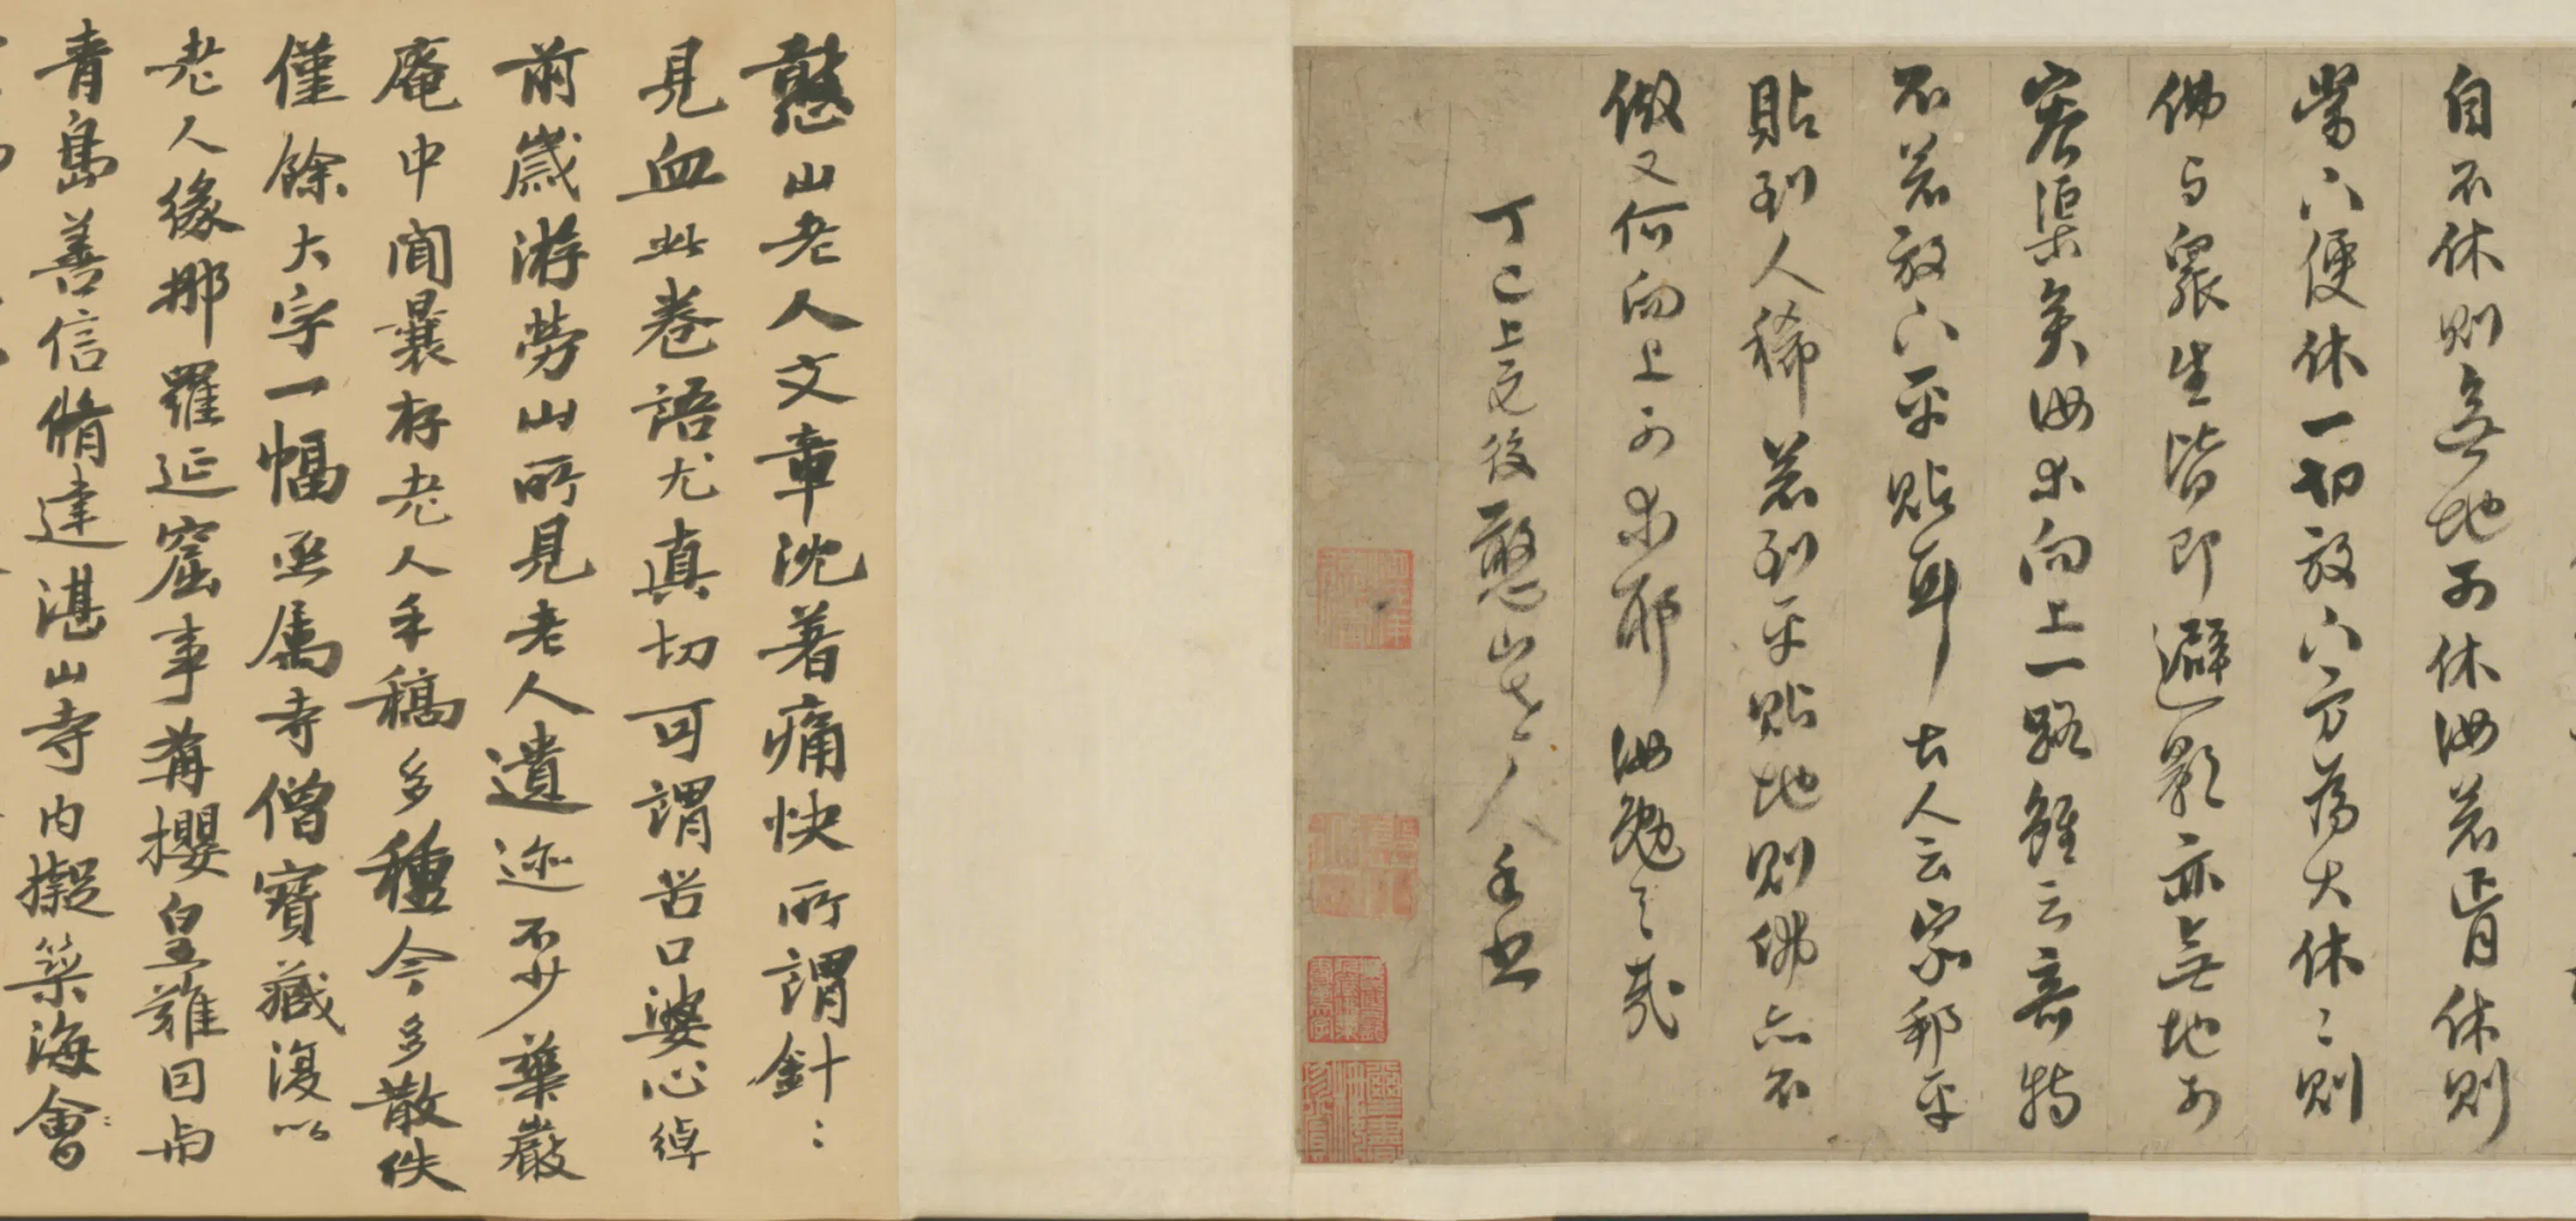 自不休則無地可休汝若肯休則
當下便休一切放下方為大休〻則
佛与眾生皆即避影亦無地可
容渠矣汝求向上一路雖云奇特
不若放下平貼耳古人云家邦平
貼到人稀若到平貼地則佛亦不
做又何向上可求耶汝勉之哉
丁巳上元後憨山老人手書
憨山老人文章沈著痛快所謂針〻
見血此卷語尤真切可謂苦口婆心綽
前歲游勞山所見老人遺迹不少華嚴
庵中聞曩存老人手稿多種今多散佚
僅餘大字一幅亟屬寺僧寶藏復以
老人緣那羅延窟事構攖皇難回与
青島善信脩建湛山寺內擬築海會